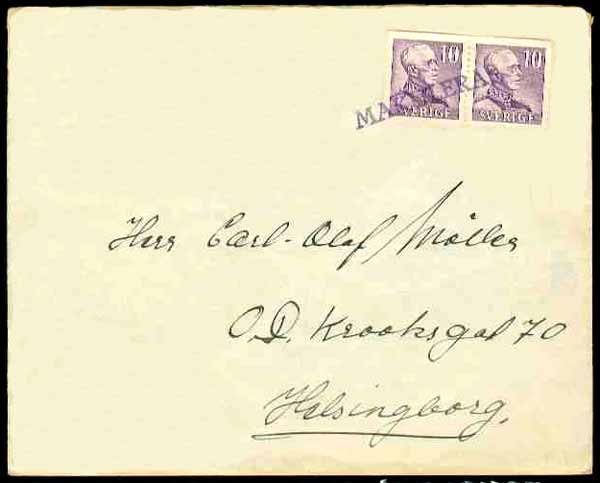 10 10
SVERIGE SVERIGE
Herr Carl-Olof Möller
O.D. Krooksgat 70
Helsingborg.